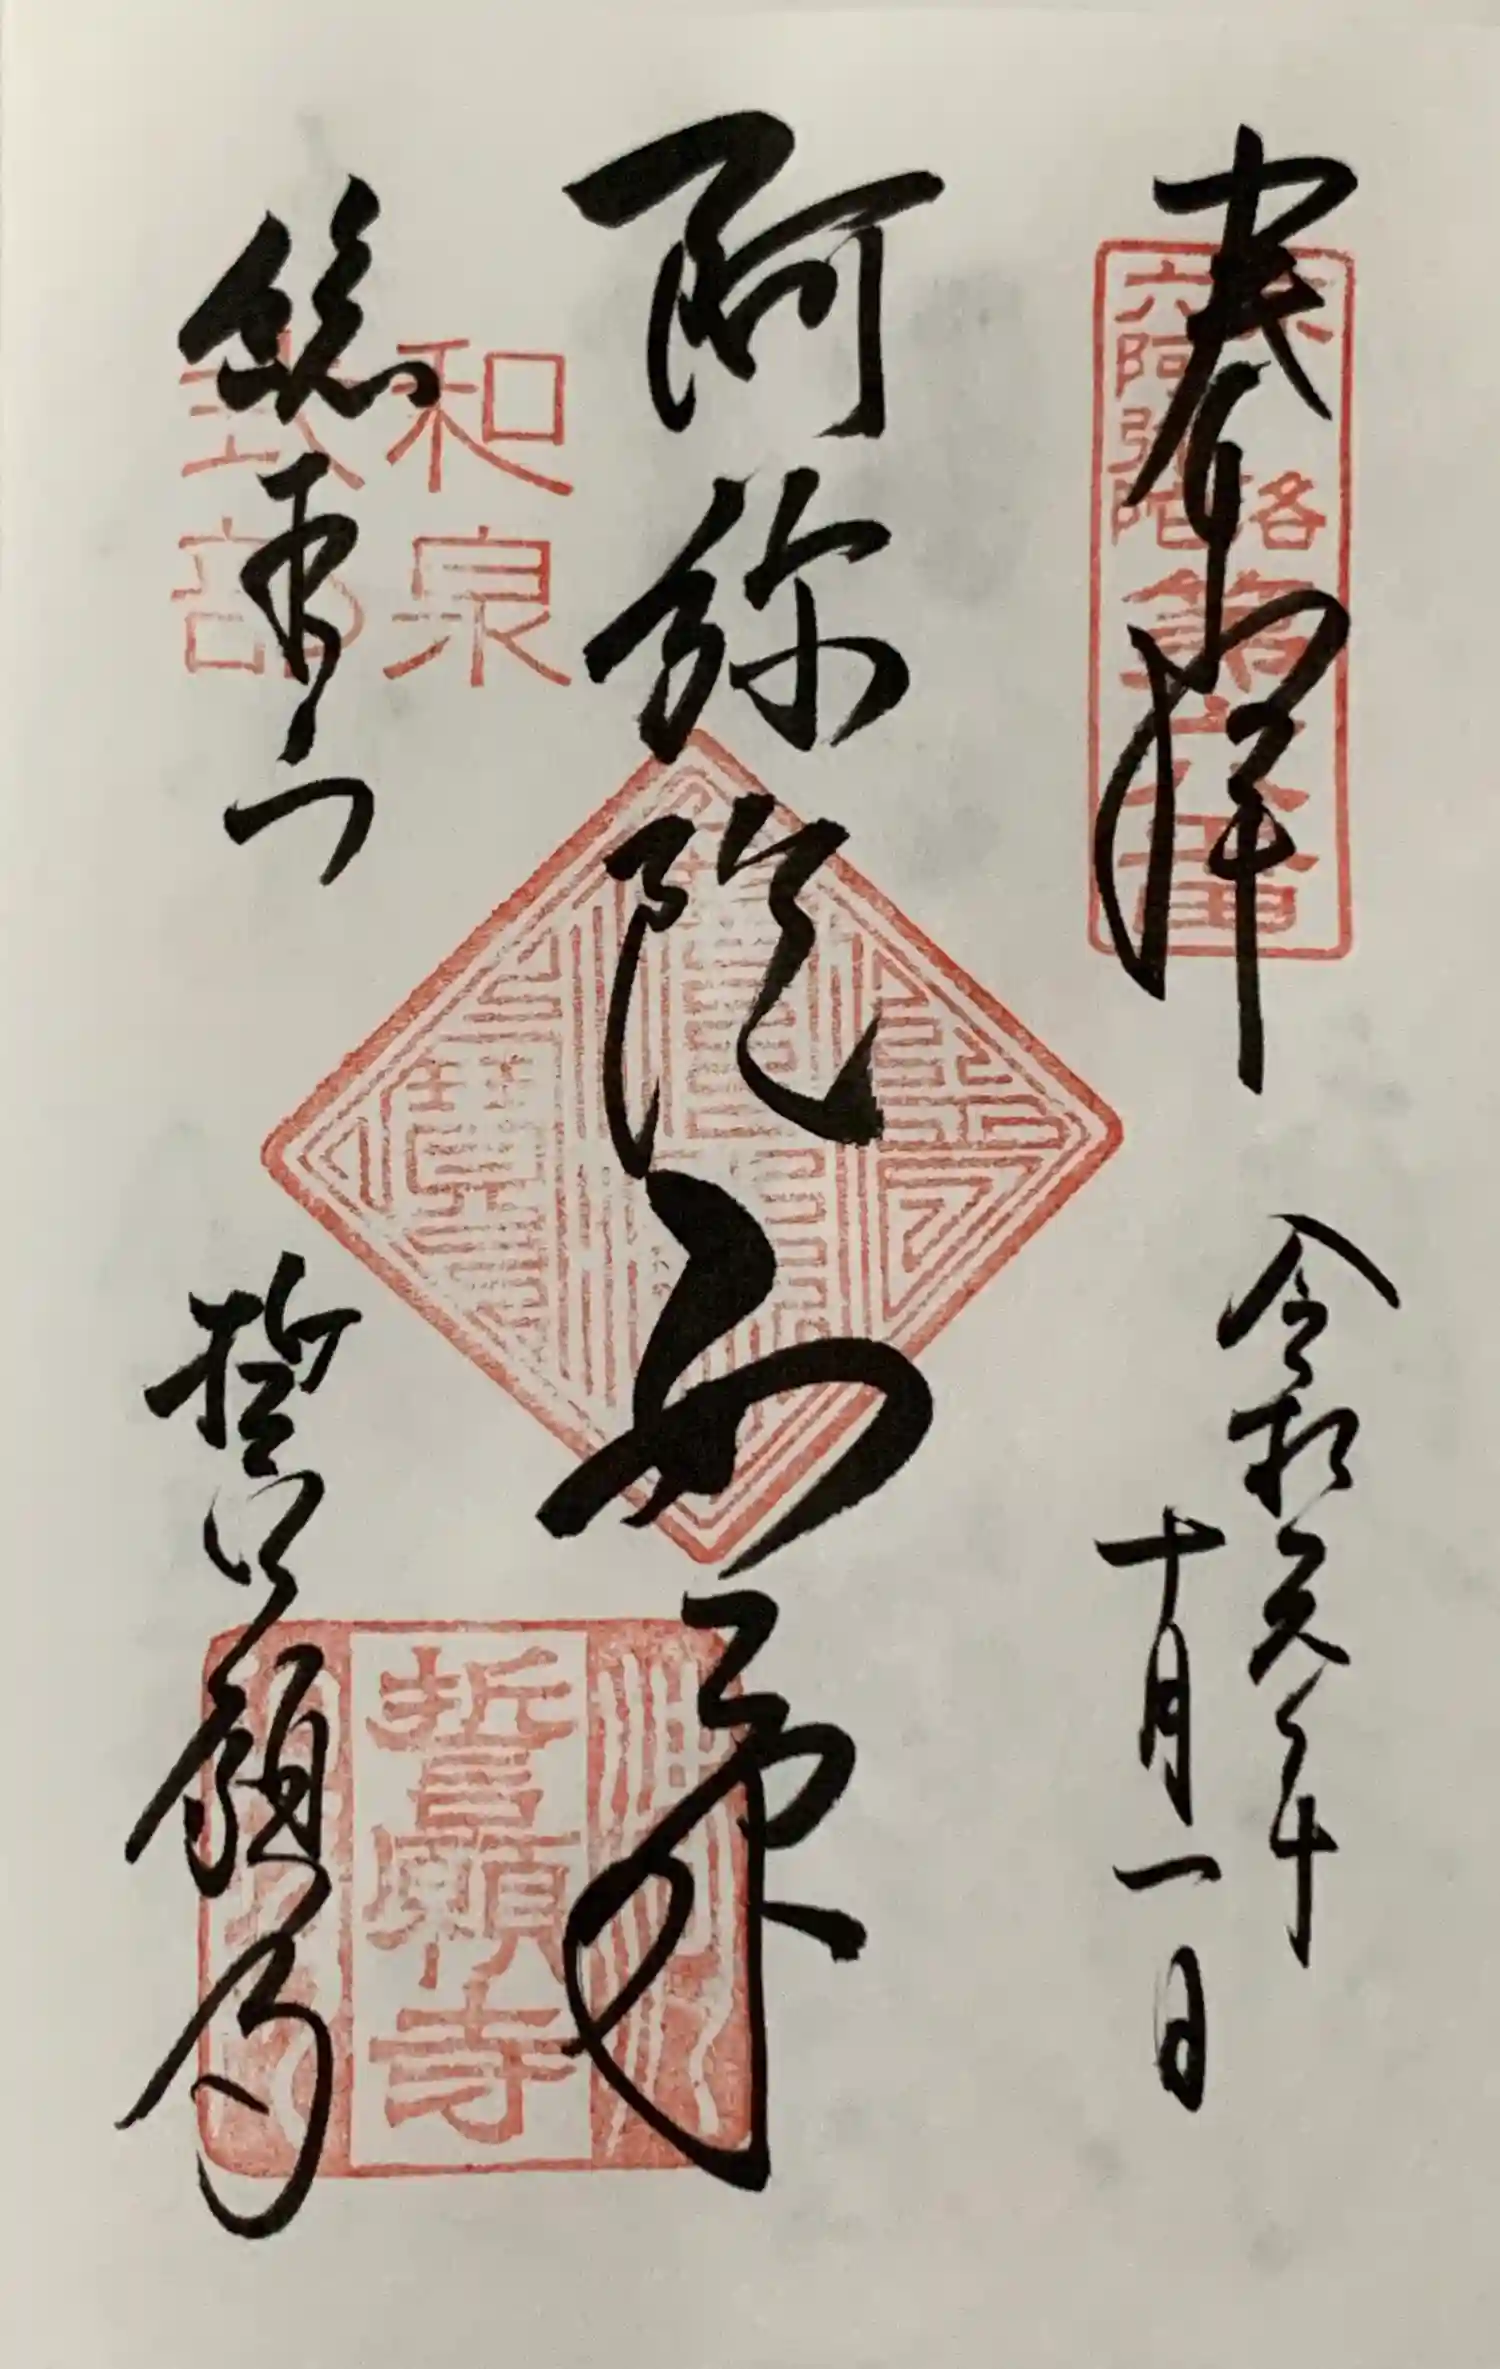 奉拝
京洛
六阿弥陀
第六番
令和元年
十月一日
阿弥陀如来
和泉
式部
総本山
誓願寺
誓願寺